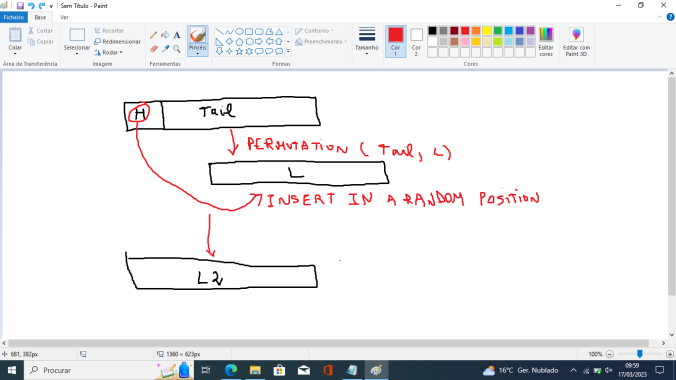 Sem Título - Paint
Ficheiro Base Ver
Colar
Cortar
Copiar
Área de Transferência
Selecionar
Recortar
Redimensionar
Rodar
Imagem
Ferramentas
Pincéis
Formas
Contorno
Preenchimento
Tamanho
Cor 1
Cor 2
Cores
Editar cores
Editar com Paint 3D
H Tail
PERMUTATION ( Tail, L)
L
INSERT IN A RANDOM POSITION
L2
681, 382px
1360 × 623px
100%
Procurar
16°C Ger. Nublado
09:59
17/03/2023